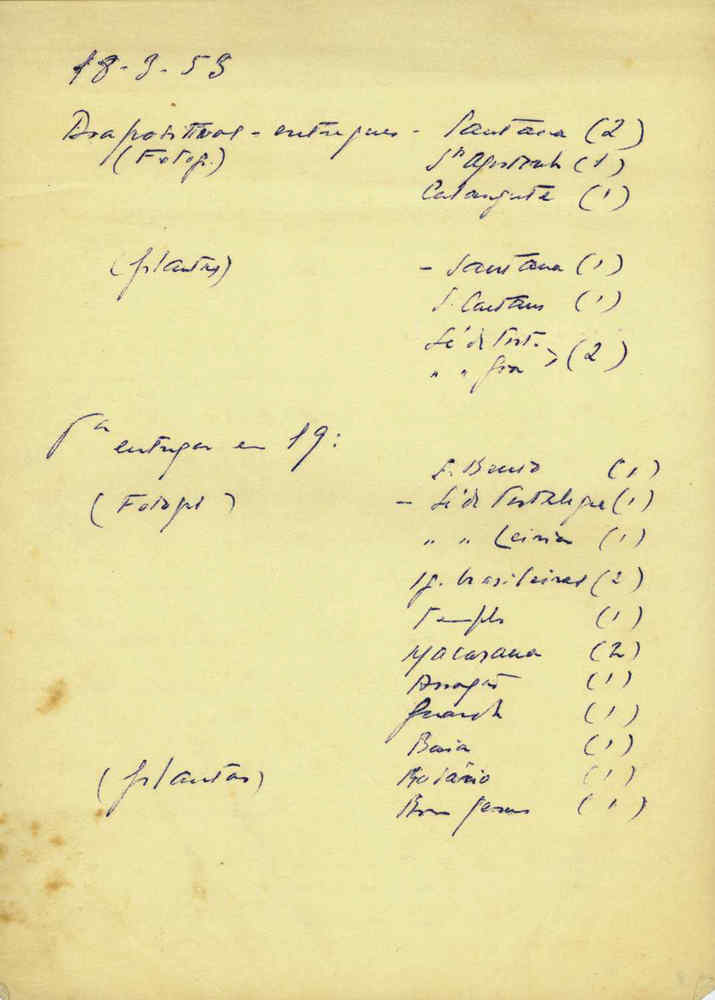 18-3-53
Diapositivos - entregues - Santana (2)
(Fotogr.) Stº Agostinho (1)
Calangute (1)
(plantas) - Santana (1)
S. Caetano (1)
Sé de Port. > (2)
" " Goa
Pª entregar em 19:
(1)
(Fotogr) - Sé de Portalegre (1)
" " Leiria (1)
Ig. brasileiras (2)
Templo (1)
(2)
(1)
(1)
Baia (1)
(plantas) Rosário (1)
Bom Jesus (1)